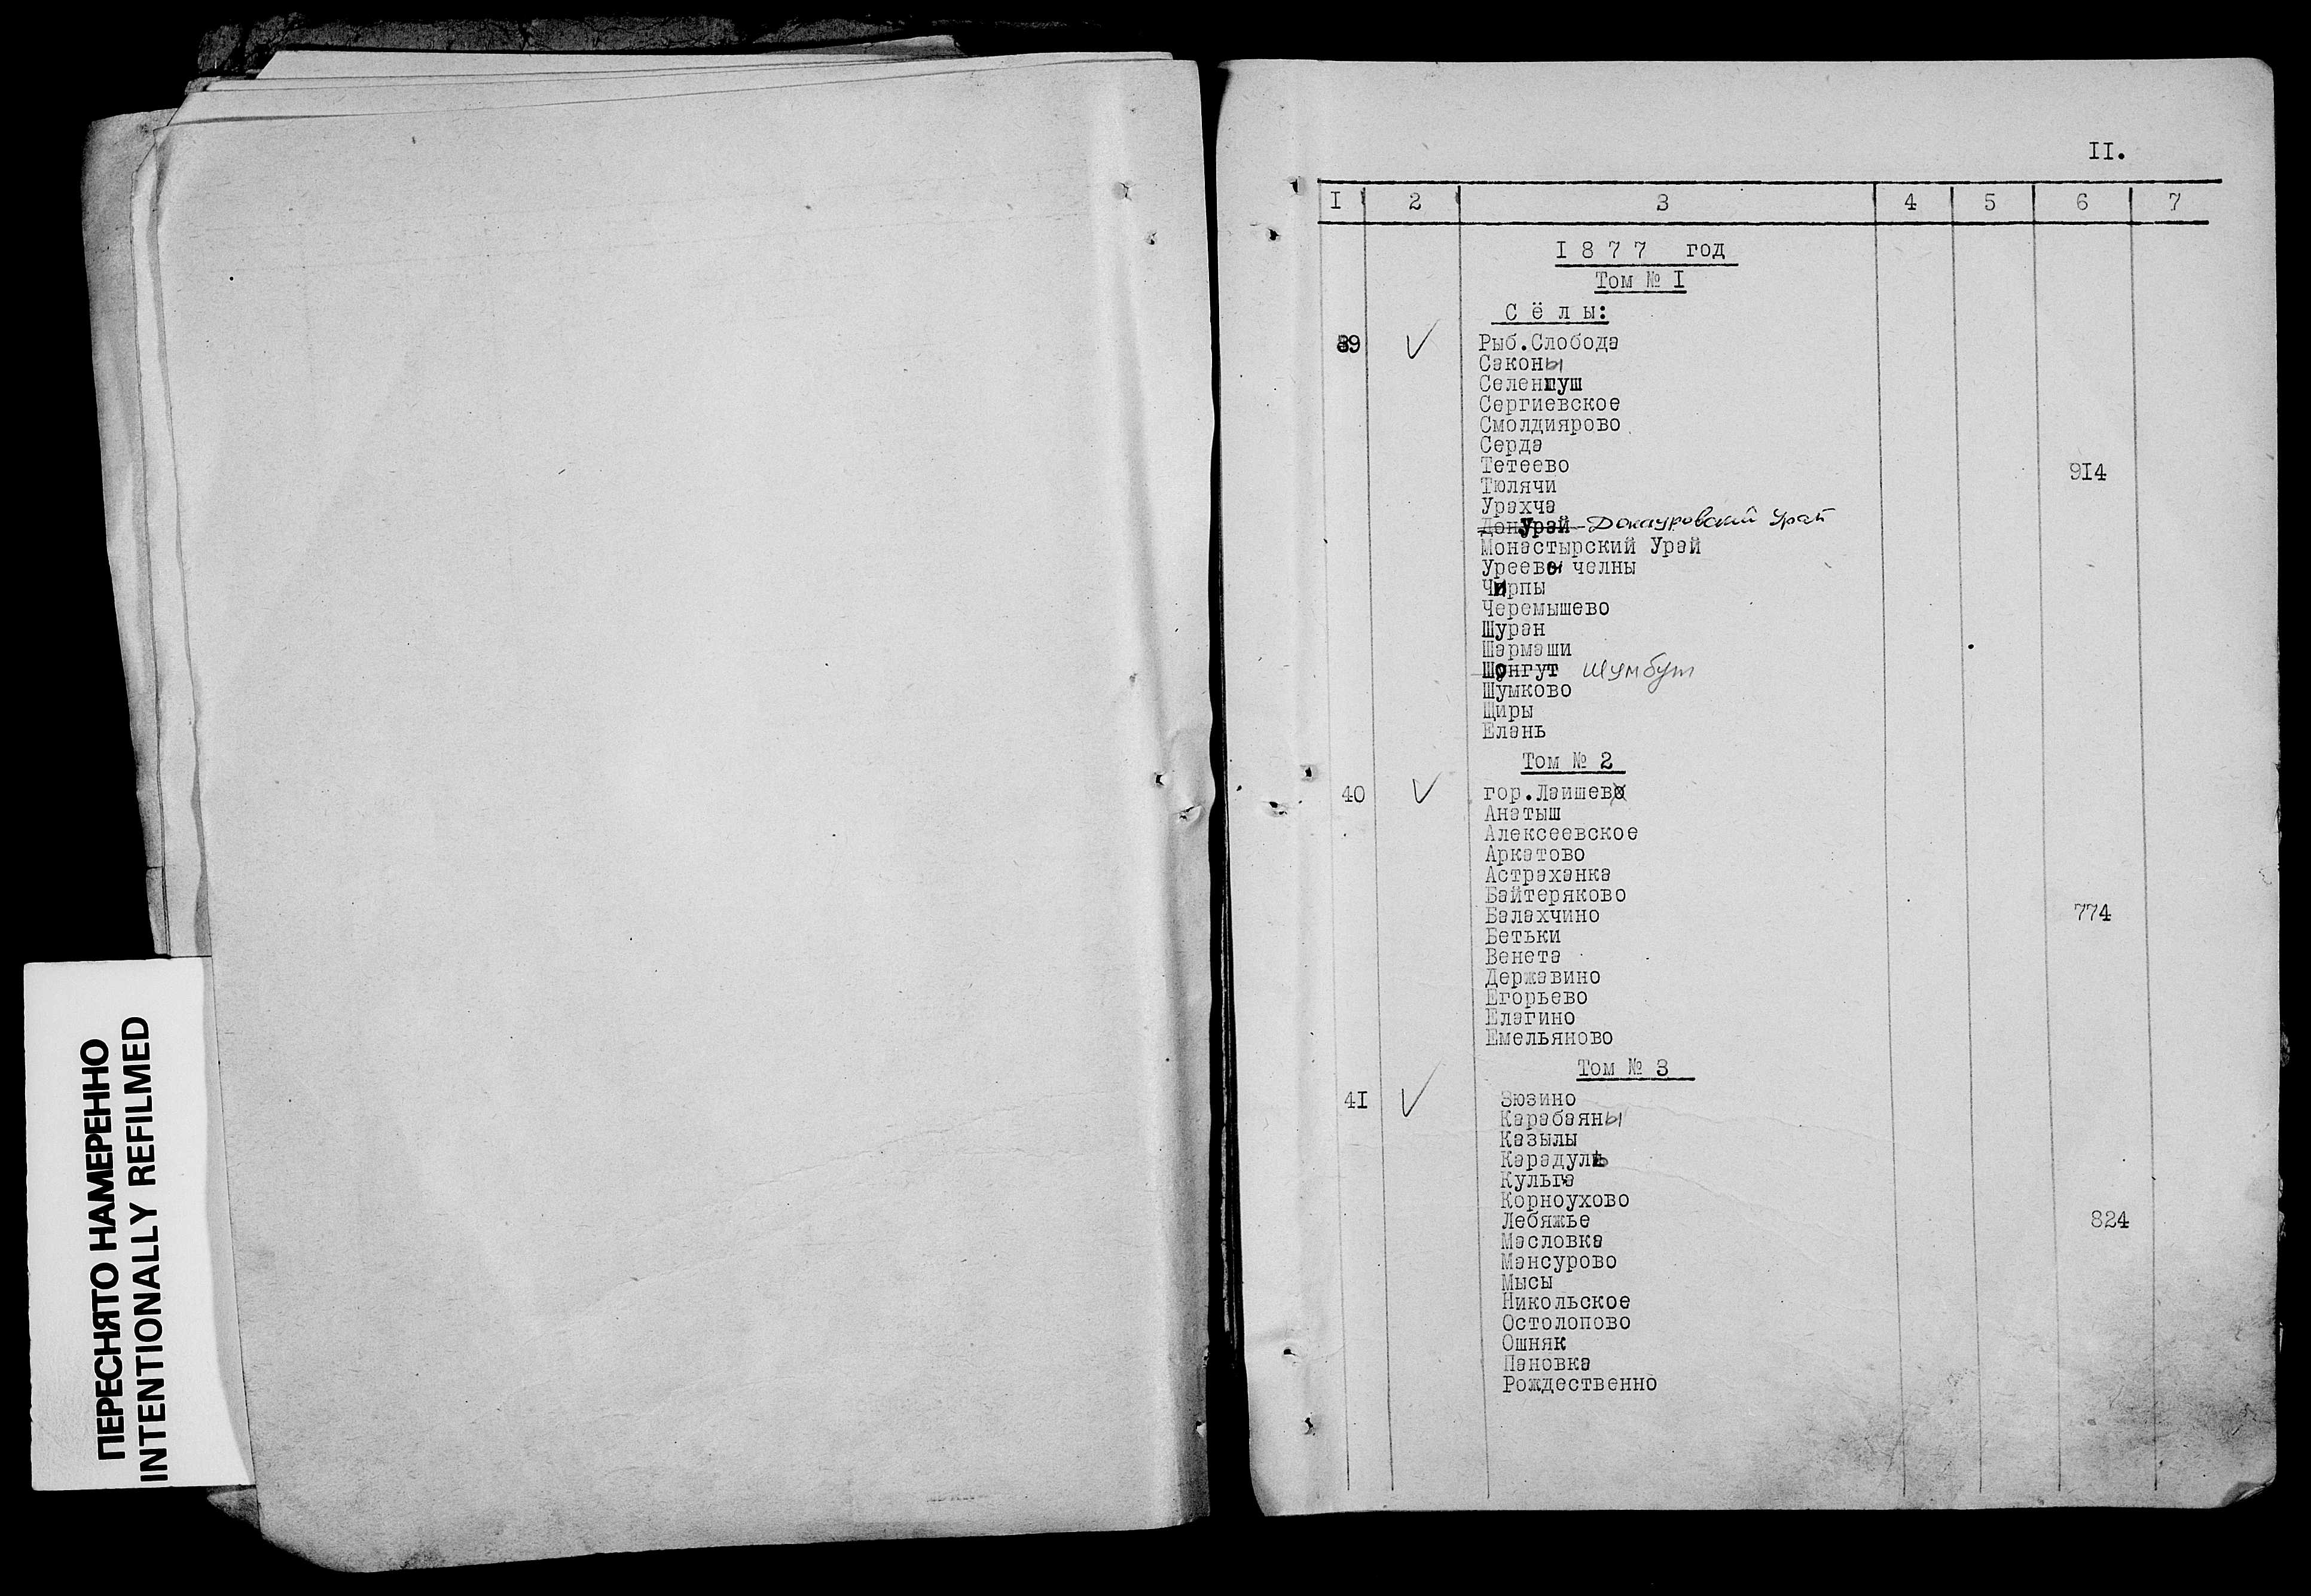 ПЕРЕСНЯТО НАМЕРЕННО
INTENTIONALLY REFILMED
II.
I 2 3 4 5 6 7
I 8 7 7 год
Том № I
С ё л ы:
39 ✓ Рыб.Слобода
Саконы
Селенгуш
Сергиевское
Смолдиярово
Серда
Тетеево 9I4
Тюлячи
Урахча
Донурай - Донауровский Урай
Монастырский Урай
Уреевы челны
Чирпы
Черемышево
Шуран
Шармаши
Шонгут Шумбут
Шумково
Щиры
Елань
Том № 2
40 ✓ гор.Лаишево
Анатыш
Алексеевское
Аркатово
Астраханка
Байтеряково
Балахчино 774
Бетьки
Венета
Державино
Егорьево
Елагино
Емельяново
Том № 3
4I ✓ Зюзино
Карабаяны
Казылы
Карадуль
Кульга
Корноухово
Лебяжье 824
Масловка
Мансурово
Мысы
Никольское
Остолопово
Ошняк
Пановка
Рождественно